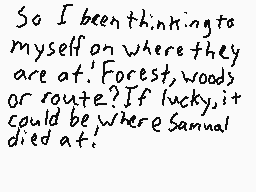 So I been thinking to
myself on where they
are at! Forest, woods
or route? If lucky, it
could be where Samual
died at!